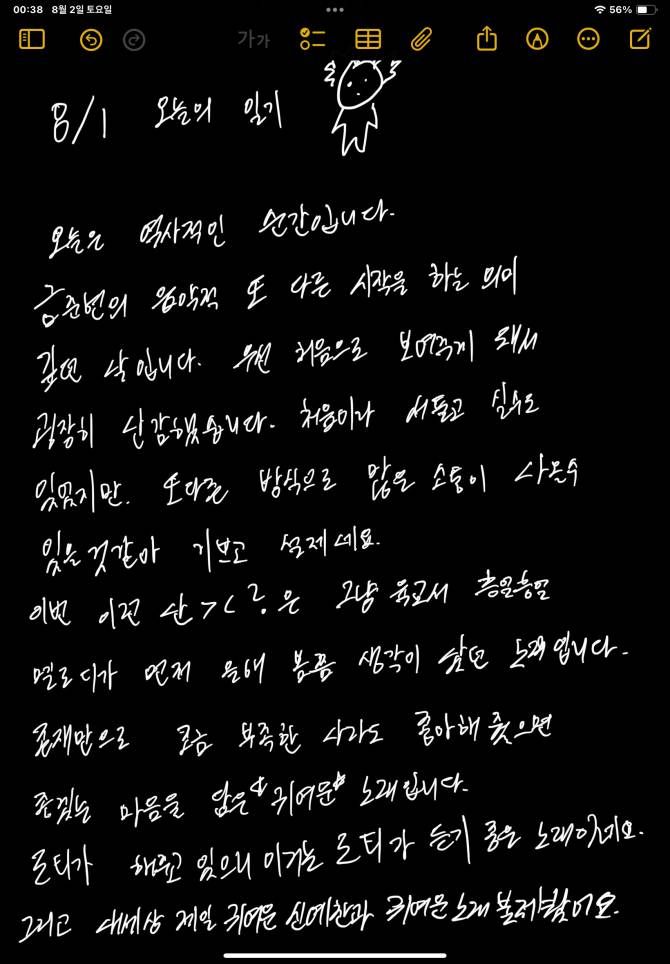 00:38 8월 2일 토요일 56%
가가
8/1 오늘의 일기
오늘은 역사적인 순간입니다.
금준번의 음악적 또 다른 시작을 하는 의미
깊던 날입니다. 우선 처음으로 보여주게 돼서
굉장히 난감했습니다. 처음이라 서툴고 실수도
있었지만. 또다른 방식으로 많은 소통이
있을것같아 기쁘고 설레네요.
이번 이전 은 그냥 육교서 흥얼흥얼
멜로디가 먼저 생각이 났던 노래입니다.
존재만으로 조금 부족한 사람도 좋아해줬으면
좋겠는 마음을 담은 귀여운 노래입니다.
로티가 해주고 있으니 이거는 로티가 듣기 좋은 노래이네요.
그리고 내세상 제일 귀여운 신예찬과 귀여운노래